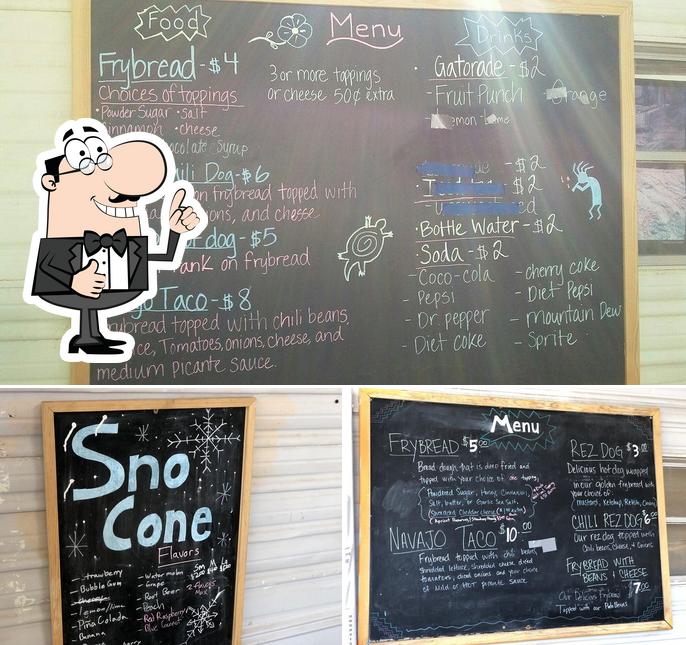 Food
Menu
Drinks
Frybread - $4
Choices of toppings
• Powder Sugar • salt
cinnamon • cheese
Syrup
3 or more toppings
or cheese 50¢ extra
Dog - $6
on frybread topped with
and cheese
dog - $5
on frybread
Taco - $8
frybread topped with chili beans,
Tomatoes, onions, cheese, and
medium picante sauce.
• Gatorade - $2
- Fruit Punch
- $2
- $2
• Bottle Water - $2
• Soda - $2
- Coco-cola
- Pepsi
- Dr. pepper
- Diet coke
- cherry coke
- Diet Pepsi
- mountain Dew
- Sprite
Sno
Cone
Flavors
- Strawberry
- Bubble Gum
- lemon/lime
- Piña Colada
- Banana
- Water melon
- Grape
- Root Beer
- Peach
- Red Raspberry
Menu
FRYBREAD $5.00
Bread dough that is deep fried and
topped with your choice of
Powdered Sugar, Honey, Cinnamon,
Salt, butter, or Garlic Sea Salt,
NAVAJO TACO $10.00
Frybread topped with chili beans,
shredded lettuce, shredded cheese, diced
tomatoes, diced onions and your choice
of mild or HOT picante sauce.
REZ DOG $3.00
Delicious hot dog wrapped
in our golden frybread with
your choice of:
mustard, Ketchup, Relish, Onions
CHILI REZ DOG 6.00
Our rez dog topped with
Chili beans, Cheese, & Onions
FRYBREAD WITH
BEANS & CHEESE
$7.00
Our Delicious Frybread
Topped with our